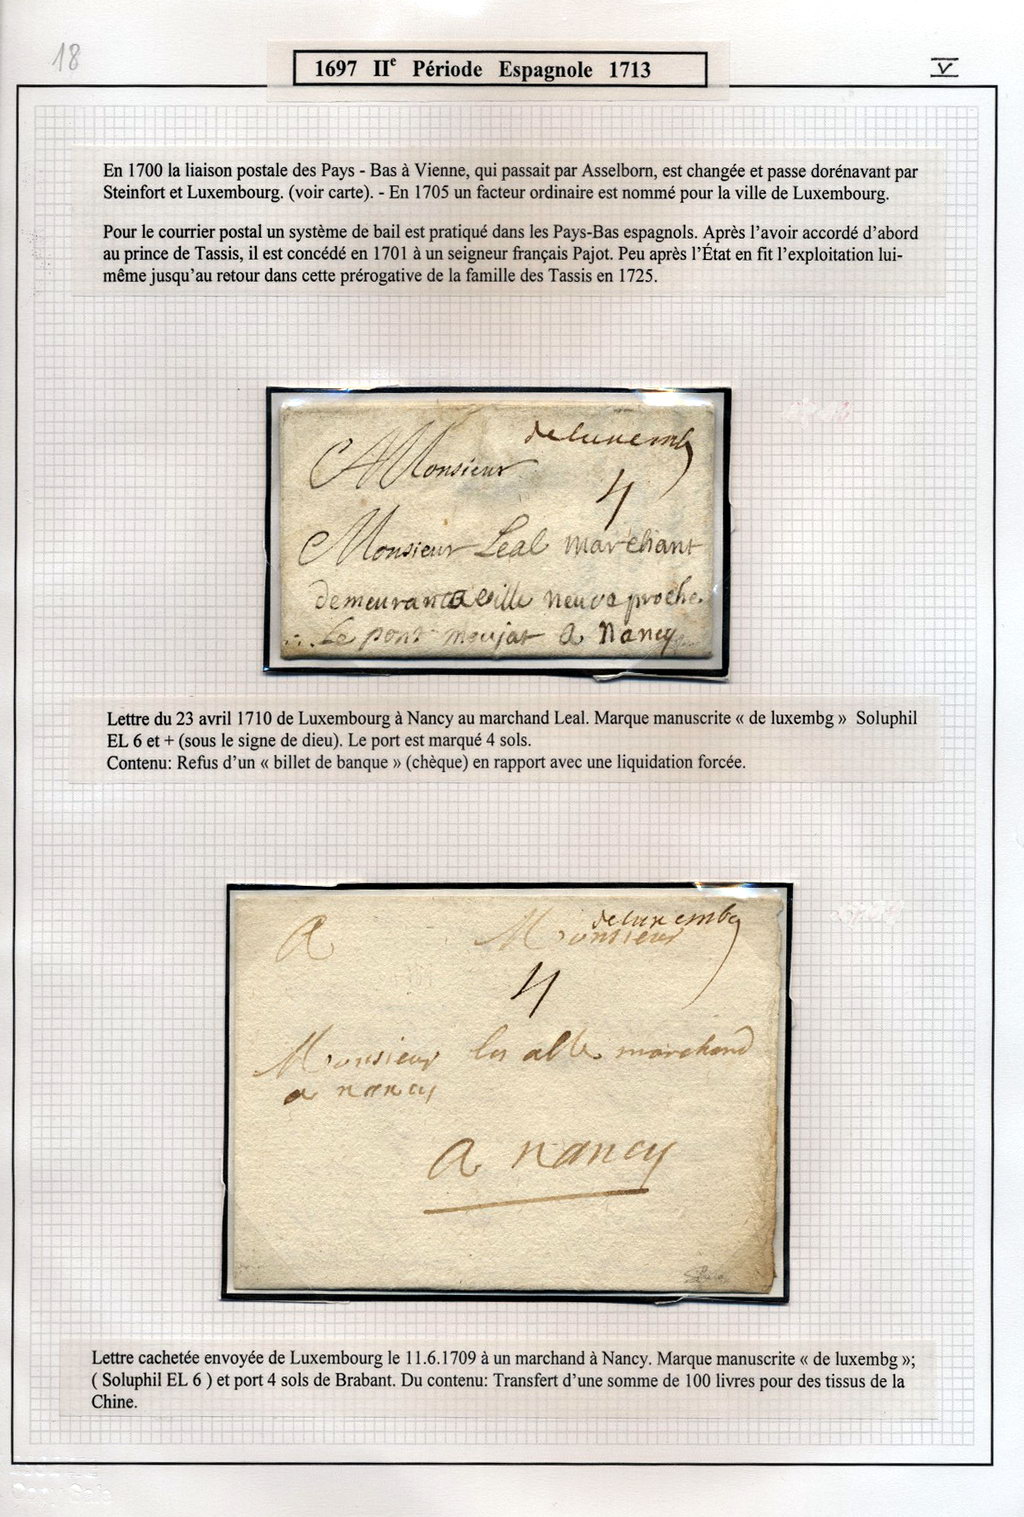 18
1697 IIe Période Espagnole 1713
V
En 1700 la liaison postale des Pays - Bas à Vienne, qui passait par Asselborn, est changée et passe dorénavant par
Steinfort et Luxembourg. (voir carte). - En 1705 un facteur ordinaire est nommé pour la ville de Luxembourg.
Pour le courrier postal un système de bail est pratiqué dans les Pays-Bas espagnols. Après l’avoir accordé d’abord
au prince de Tassis, il est concédé en 1701 à un seigneur français Pajot. Peu après l’État en fit l’exploitation lui-
même jusqu’au retour dans cette prérogative de la famille des Tassis en 1725.
de luxembg
A Monsieur
4
Monsieur Leal marchant
demeurant a ville neuve proche
Le pont moujat a Nancy
Lettre du 23 avril 1710 de Luxembourg à Nancy au marchand Leal. Marque manuscrite « de luxembg » Soluphil
EL 6 et + (sous le signe de dieu). Le port est marqué 4 sols.
Contenu: Refus d’un « billet de banque » (chèque) en rapport avec une liquidation forcée.
de luxembg
A Monsieur
4
Monsieur marchand
a nancy
a nancy
Lettre cachetée envoyée de Luxembourg le 11.6.1709 à un marchand à Nancy. Marque manuscrite « de luxembg »;
( Soluphil EL 6 ) et port 4 sols de Brabant. Du contenu: Transfert d’une somme de 100 livres pour des tissus de la
Chine.